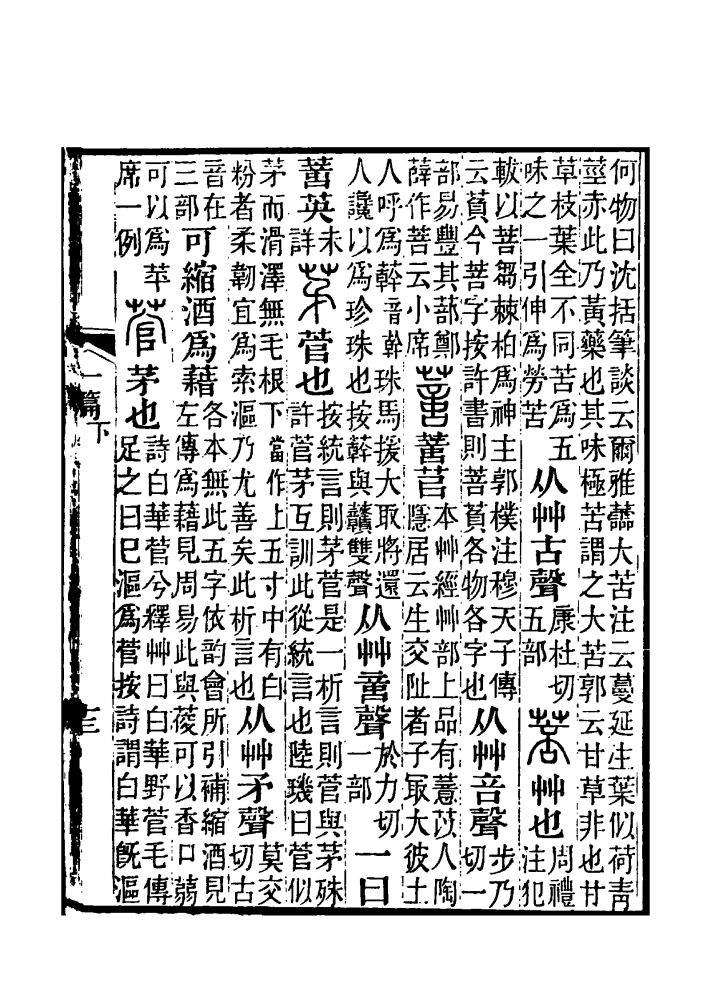 何物曰沈括筆談云爾雅蘦大苦注云蔓延生葉似荷青
莖赤此乃黃藥也其味極苦謂之大苦郭云甘草非也甘
草枝葉全不同苦爲五味之一引伸爲勞苦从艸古聲康杜切五部菩艸也周禮注犯
軷以菩芻棘柏爲神主郭樸注穆天子傳云萯今菩字按許書則菩萯各物各字也从艸咅聲步乃切一
部易豐其蔀鄭薛作菩云小席苢本艸經艸部上品有薏苡人陶隱居云生交阯者子冣大彼土
人呼爲音幹珠馬援大取將還人讒以爲珍珠也按與贛雙聲从艸聲於力切一部一曰
英未詳茅菅也按統言則茅菅是一析言則菅與茅殊許菅茅互訓此從統言也陸璣曰菅似
茅而滑澤無毛根下當作上五寸中有白粉者柔韌宜爲索漚乃尤善矣此析言也从艸矛聲莫交切古
音在三部可縮酒爲藉各本無此五字依韵會所引補縮酒見左傳爲藉見周易此與葰可以香口蒻
可以爲苹席一例菅茅也詩白華菅兮釋艸曰白華野菅毛傳足之曰巳漚爲菅按詩謂白華旣漚
一篇下
十三